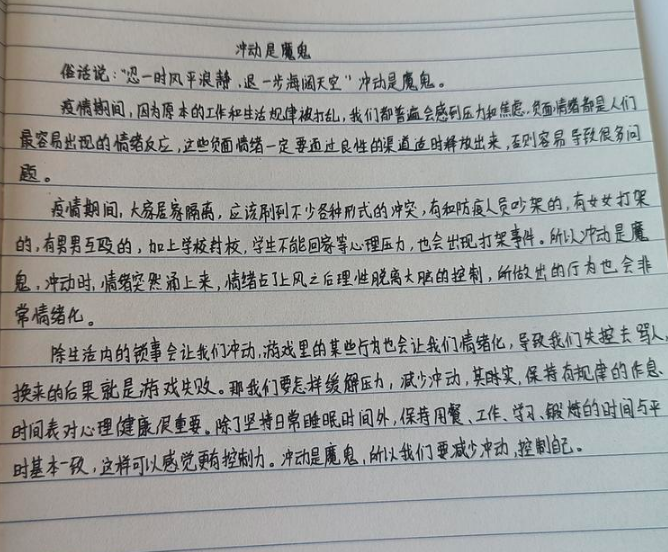 冲动是魔鬼
俗话说：“忍一时风平浪静，退一步海阔天空”冲动是魔鬼。
疫情期间，因为原本的工作和生活规律被打乱，我们都普遍会感到压力和焦虑，负面情绪都是人们
最容易出现的情绪反应，这些负面情绪一定要通过良性的渠道适时释放出来，否则容易导致很多问
题。
疫情期间，大家居家隔离，应该刷到不少各种形式的冲突，有和防疫人员吵架的，有女女打架
的，有男男互殴的，加上学校封校，学生不能回家等心理压力，也会出现打架事件。所以冲动是魔
鬼，冲动时，情绪突然涌上来，情绪占了上风之后理性脱离大脑的控制，所做出的行为也会非
常情绪化。
除生活内的锁事会让我们冲动，游戏里的某些行为也会让我们情绪化，导致我们失控去骂人，
换来的后果就是游戏失败。那我们要怎样缓解压力，减少冲动，其时实，保持有规律的作息
时间表对心理健康很重要。除了坚持日常睡眠时间外，保持用餐、工作、学习、锻炼的时间与平
时基本一致，这样可以感觉更有控制力。冲动是魔鬼，所以我们要减少冲动，控制自己。